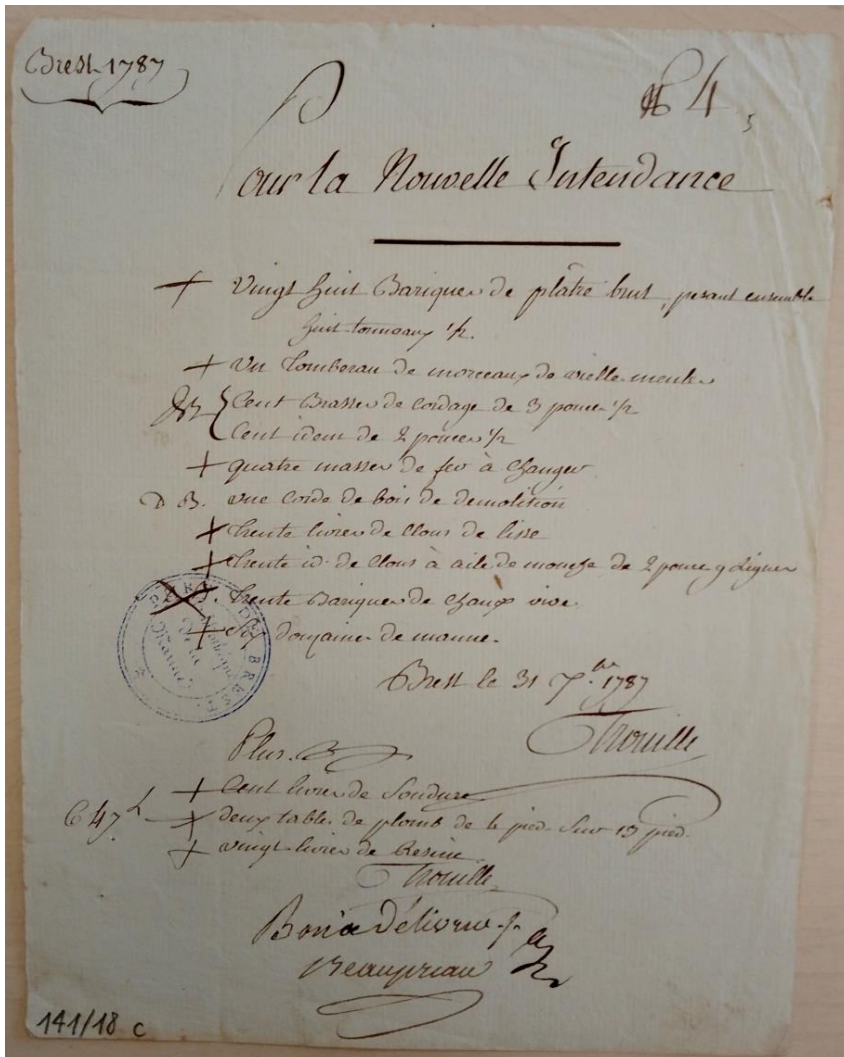 Brest 1787
N 4
Pour la Nouvelle Intendance
+ Vingt huit Bariques de plâtre brut, pesant ensemble
huit tonneaux 1/2.
+ Un tombereau de morceaux de vielle
Cent Brasses de cordage de 3 pouces 1/2
Cent idem de 2 pouces 1/2
+ quatre masses de fer à changer
D B. une corde de bois de demolition
+ trente livres de clous de lisse
+ trente id. de clous à aile de mouche de 2 pouces 9 lignes
trente Bariques de chaux vive
+ Six domaines de manne.
Brest le 31 7.bre 1787
Trouille
Plus.
+ Cent livres de Soudure
+ deux tables de plomb de 4 pieds Sur 13 pieds.
+ vingt livres de Resine
Trouille
Bon à Délivrer
Beaupreau
PORT DE BREST
de la
Marine
141/18 c